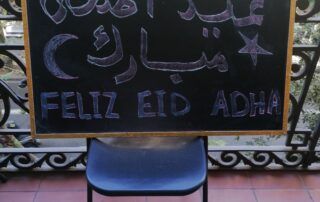 عيد الأضحى
مبارك
FELIZ EID ADHA